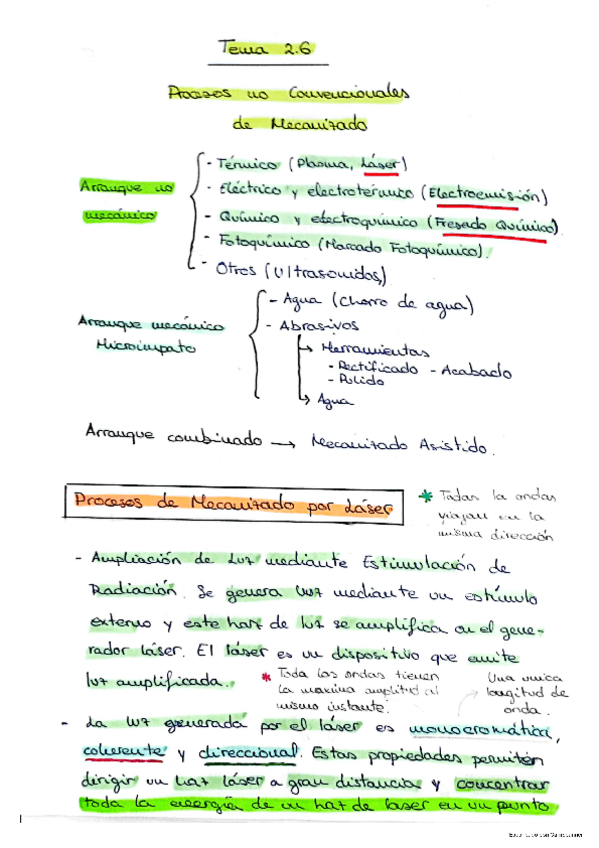 Tema 2.6
Procesos no Convencionales
de Mecanizado
Arranque no
mecánico
- Térmico (Plasma, Láser)
- Eléctrico y electrotérmico (Electroemisión)
- Químico y electroquímico (Fresado Químico).
- Fotoquímico (Marcado Fotoquímico).
- Otros (Ultrasonidos,)
Arranque mecánico
Microimpato
- Agua (Chorro de agua)
- Abrasivos
→ Herramientas
- Rectificado - Acabado
- Pulido
→ Agua
Arranque combinado → Mecanizado Asistido.
Procesos de Mecanizado por Láser
* Todas la ondas
viajan en la
misma dirección
- Ampliación de Luz mediante Estimulación de
Radiación. Se genera luz mediante un estímulo
externo y este haz de luz se amplifica en el gene-
rador láser. El láser es un dispositivo que emite
luz amplificada.
* Toda las ondas tienen
la maxima amplitud al
mismo instante.
Una unica
longitud de
onda.
- La luz generada por el láser es monocromática,
coherente y direccional. Estas propiedades permiten
dirigir un haz láser a gran distancia y concentrar
toda la energía de un haz de laser en un punto